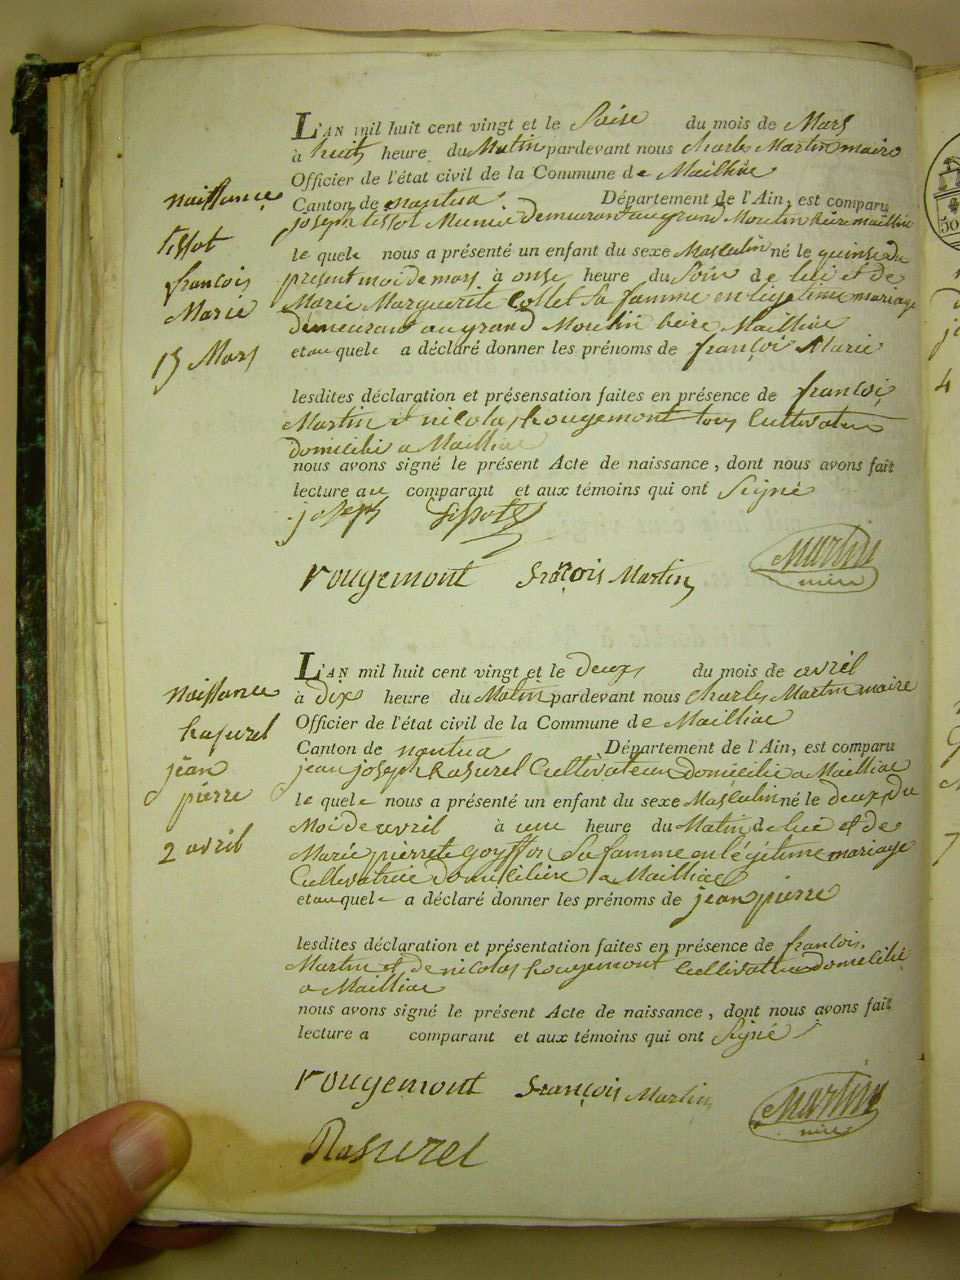 L'AN mil huit cent vingt et le Saise du mois de Mars
à huit heure du Matin pardevant nous Charles Martin maire
Officier de l'état civil de la Commune de Mailliac
naissance
Canton de nantua Département de l'Ain, est comparu
joseph tissot Munié demeurant au grand Moulin
tissot
le quele nous a présenté un enfant du sexe Masculin né le quinse du
françois
present moi de mars à onse heure du Soir de lui et de
Marie
Marie Marguerite Collet Sa famme en legetime mariage
demeurant au grand Moulin Mailliac
15 Mars
et auquele a déclaré donner les prénoms de françoi Marie
lesdites déclaration et présensation faites en présence de françoi
Martin et nicolas Rougemont tous Cultivateur
domicilié a Mailliac
nous avons signé le présent Acte de naissance, dont nous avons fait
lecture au comparant et aux témoins qui ont Signé
joseph tissot
rougemont françois Martin Martin
mire
L'AN mil huit cent vingt et le deuxs du mois de avril
naissance
à dixs heure du Matin pardevant nous Charles Martin maire
Officier de l'état civil de la Commune de Mailliac
Rasurel
Canton de nantua Département de l'Ain, est comparu
jean
jean joseph Rasurel Cultivateur domicilié a Mailliac
pierre
le quele nous a présenté un enfant du sexe Masculin né le deuxs du
Moi de avril à une heure du Matin de lui et de
2 avril
Marie pierrete Goyffon Sa famme en légétime mariage
Cultivatrice domicilière a Mailliac
et auquele a déclaré donner les prénoms de jean pierre
lesdites déclaration et présentation faites en présence de francois
Martin et de nicolas Rougemont Cultivateur domecilié
a Mailliac
nous avons signé le présent Acte de naissance, dont nous avons fait
lecture a comparant et aux témoins qui ont Signé
rougemont françois Martin Martin
mire
Rasurel